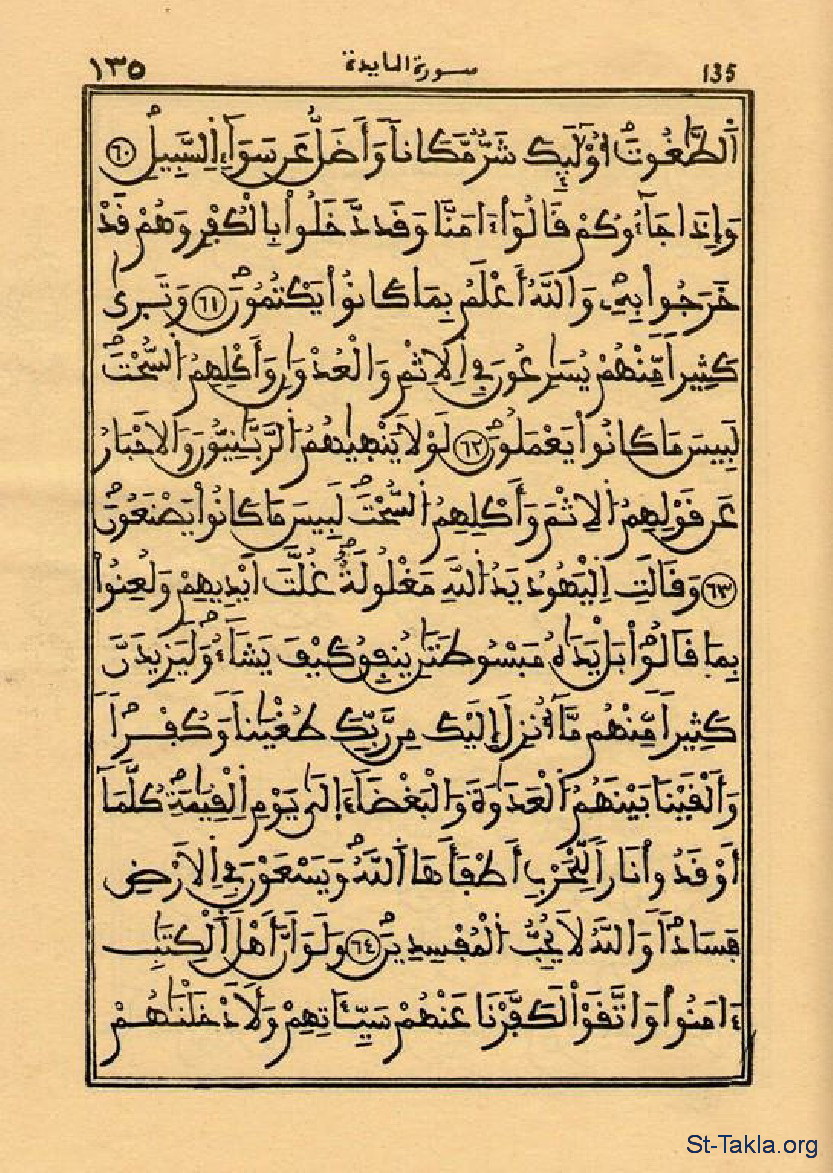 ١٣٥ سورة المايدة 135
اَ۬لطَّٰغُوتَۖ أُوْلَٰٓئِكَ شَرّٞ مَّكَاناٗ وَأَضَلُّ عَن سَوَآءِ اِ۬لسَّبِيلِۖ ٦٠
وَإِذَا جَآءُوكُمْ قَالُوٓاْ ءَامَنَّا وَقَد دَّخَلُواْ بِالْكُفْرِ وَهُمْ قَدْ
خَرَجُواْ بِهِۦۖ وَاللَّهُ أَعْلَمُ بِمَا كَانُواْ يَكْتُمُونَۖ ٦١ وَتَر۪ىٰ
كَثِيراٗ مِّنْهُمْ يُسَٰرِعُونَ فِے اِ۬لِاثْمِ وَالْعُدْوَٰنِ وَأَكْلِهِمُ اُ۬لسُّحْتَۖ
لَبِيسَ مَا كَانُواْ يَعْمَلُونَۖ ٦٢ لَوْلَا يَنْه۪يٰهُمُ اُ۬لرَّبَّٰنِيُّونَ وَالَاحْبَارُ
عَن قَوْلِهِمُ اُ۬لِاثْمَ وَأَكْلِهِمُ اُ۬لسُّحْتَۖ لَبِيسَ مَا كَانُواْ يَصْنَعُونَۖ
٦٣ وَقَالَتِ اِ۬لْيَهُودُ يَدُ اُ۬للَّهِ مَغْلُولَةٌۖ غُلَّتَ اَيْدِيهِمْ وَلُعِنُواْ
بِمَا قَالُواْۖ بَلْ يَدَٰهُ مَبْسُوطَتَٰنِ يُنفِقُ كَيْفَ يَشَآءُۖ وَلَيَزِيدَنَّ
كَثِيراٗ مِّنْهُم مَّآ أُنزِلَ إِلَيْكَ مِن رَّبِّكَ طُغْيَٰناٗ وَكُفْراٗۖ
وَأَلْقَيْنَا بَيْنَهُمُ اُ۬لْعَدَٰوَةَ وَالْبَغْضَآءَ إِلَىٰ يَوْمِ اِ۬لْقِيَٰمَةِۖ كُلَّمَآ
أَوْقَدُواْ نَاراٗ لِّلْحَرْبِ أَطْفَأَهَا اَ۬للَّهُۖ وَيَسْعَوْنَ فِے اِ۬لَارْضِ
فَسَاداٗۖ وَاللَّهُ لَا يُحِبُّ اُ۬لْمُفْسِدِينَۖ ٦٤ وَلَوَ اَنَّ أَهْلَ اَ۬لْكِتَٰبِ
ءَامَنُواْ وَاتَّقَوْاْ لَكَفَّرْنَا عَنْهُمْ سَيِّـَٔاتِهِمْ وَلَأَدْخَلْنَٰهُمْ
St-Takla.org